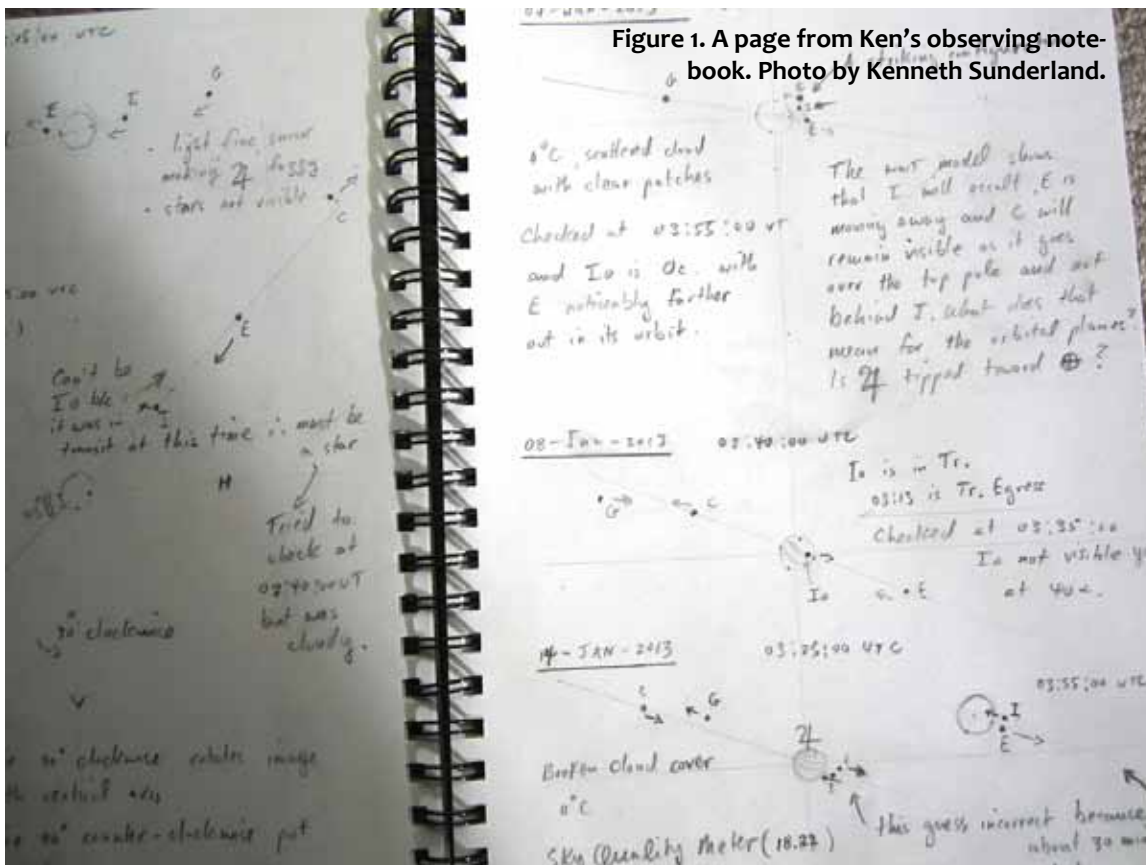 Figure 1. A page from Ken's observing note-
book. Photo by Kenneth Sunderland.
:05:00 UTC
G
E
I
• light fine snow
making ♃ fuzzy
• stars not visible
C
5:00 UTC
E
Can't be
Io b/c
it was in
transit at this time ∴ must be
a star
Tried to
check at
UT
but was
cloudy.
90° clockwise
90° clockwise rotates image
vertical axis
90° counter-clockwise put
2013
A striking
G
E
0°C, scattered cloud
with clear patches
Checked at 03:55:00 UT
and Io is Oc. with
E noticeably farther
out in its orbit.
The model shows
that I will occult, E is
moving away and C will
remain visible as it goes
over the top pole and out
behind I. What does that
mean for the orbital planes?
Is ♃ tipped toward ⊕ ?
08-Jan-2013
:40:00 UTC
Io is in Tr.
03:13 is Tr. Egress
Checked at 03:35:00
Io not visible
at 40x.
G
C
Io
E
14-JAN-2013
03:25:00 UTC
03:55:00 UTC
C
G
♃
I
E
Broken cloud cover
0°C
Sky Quality Meter (18.27)
this guess incorrect because
about 30 min